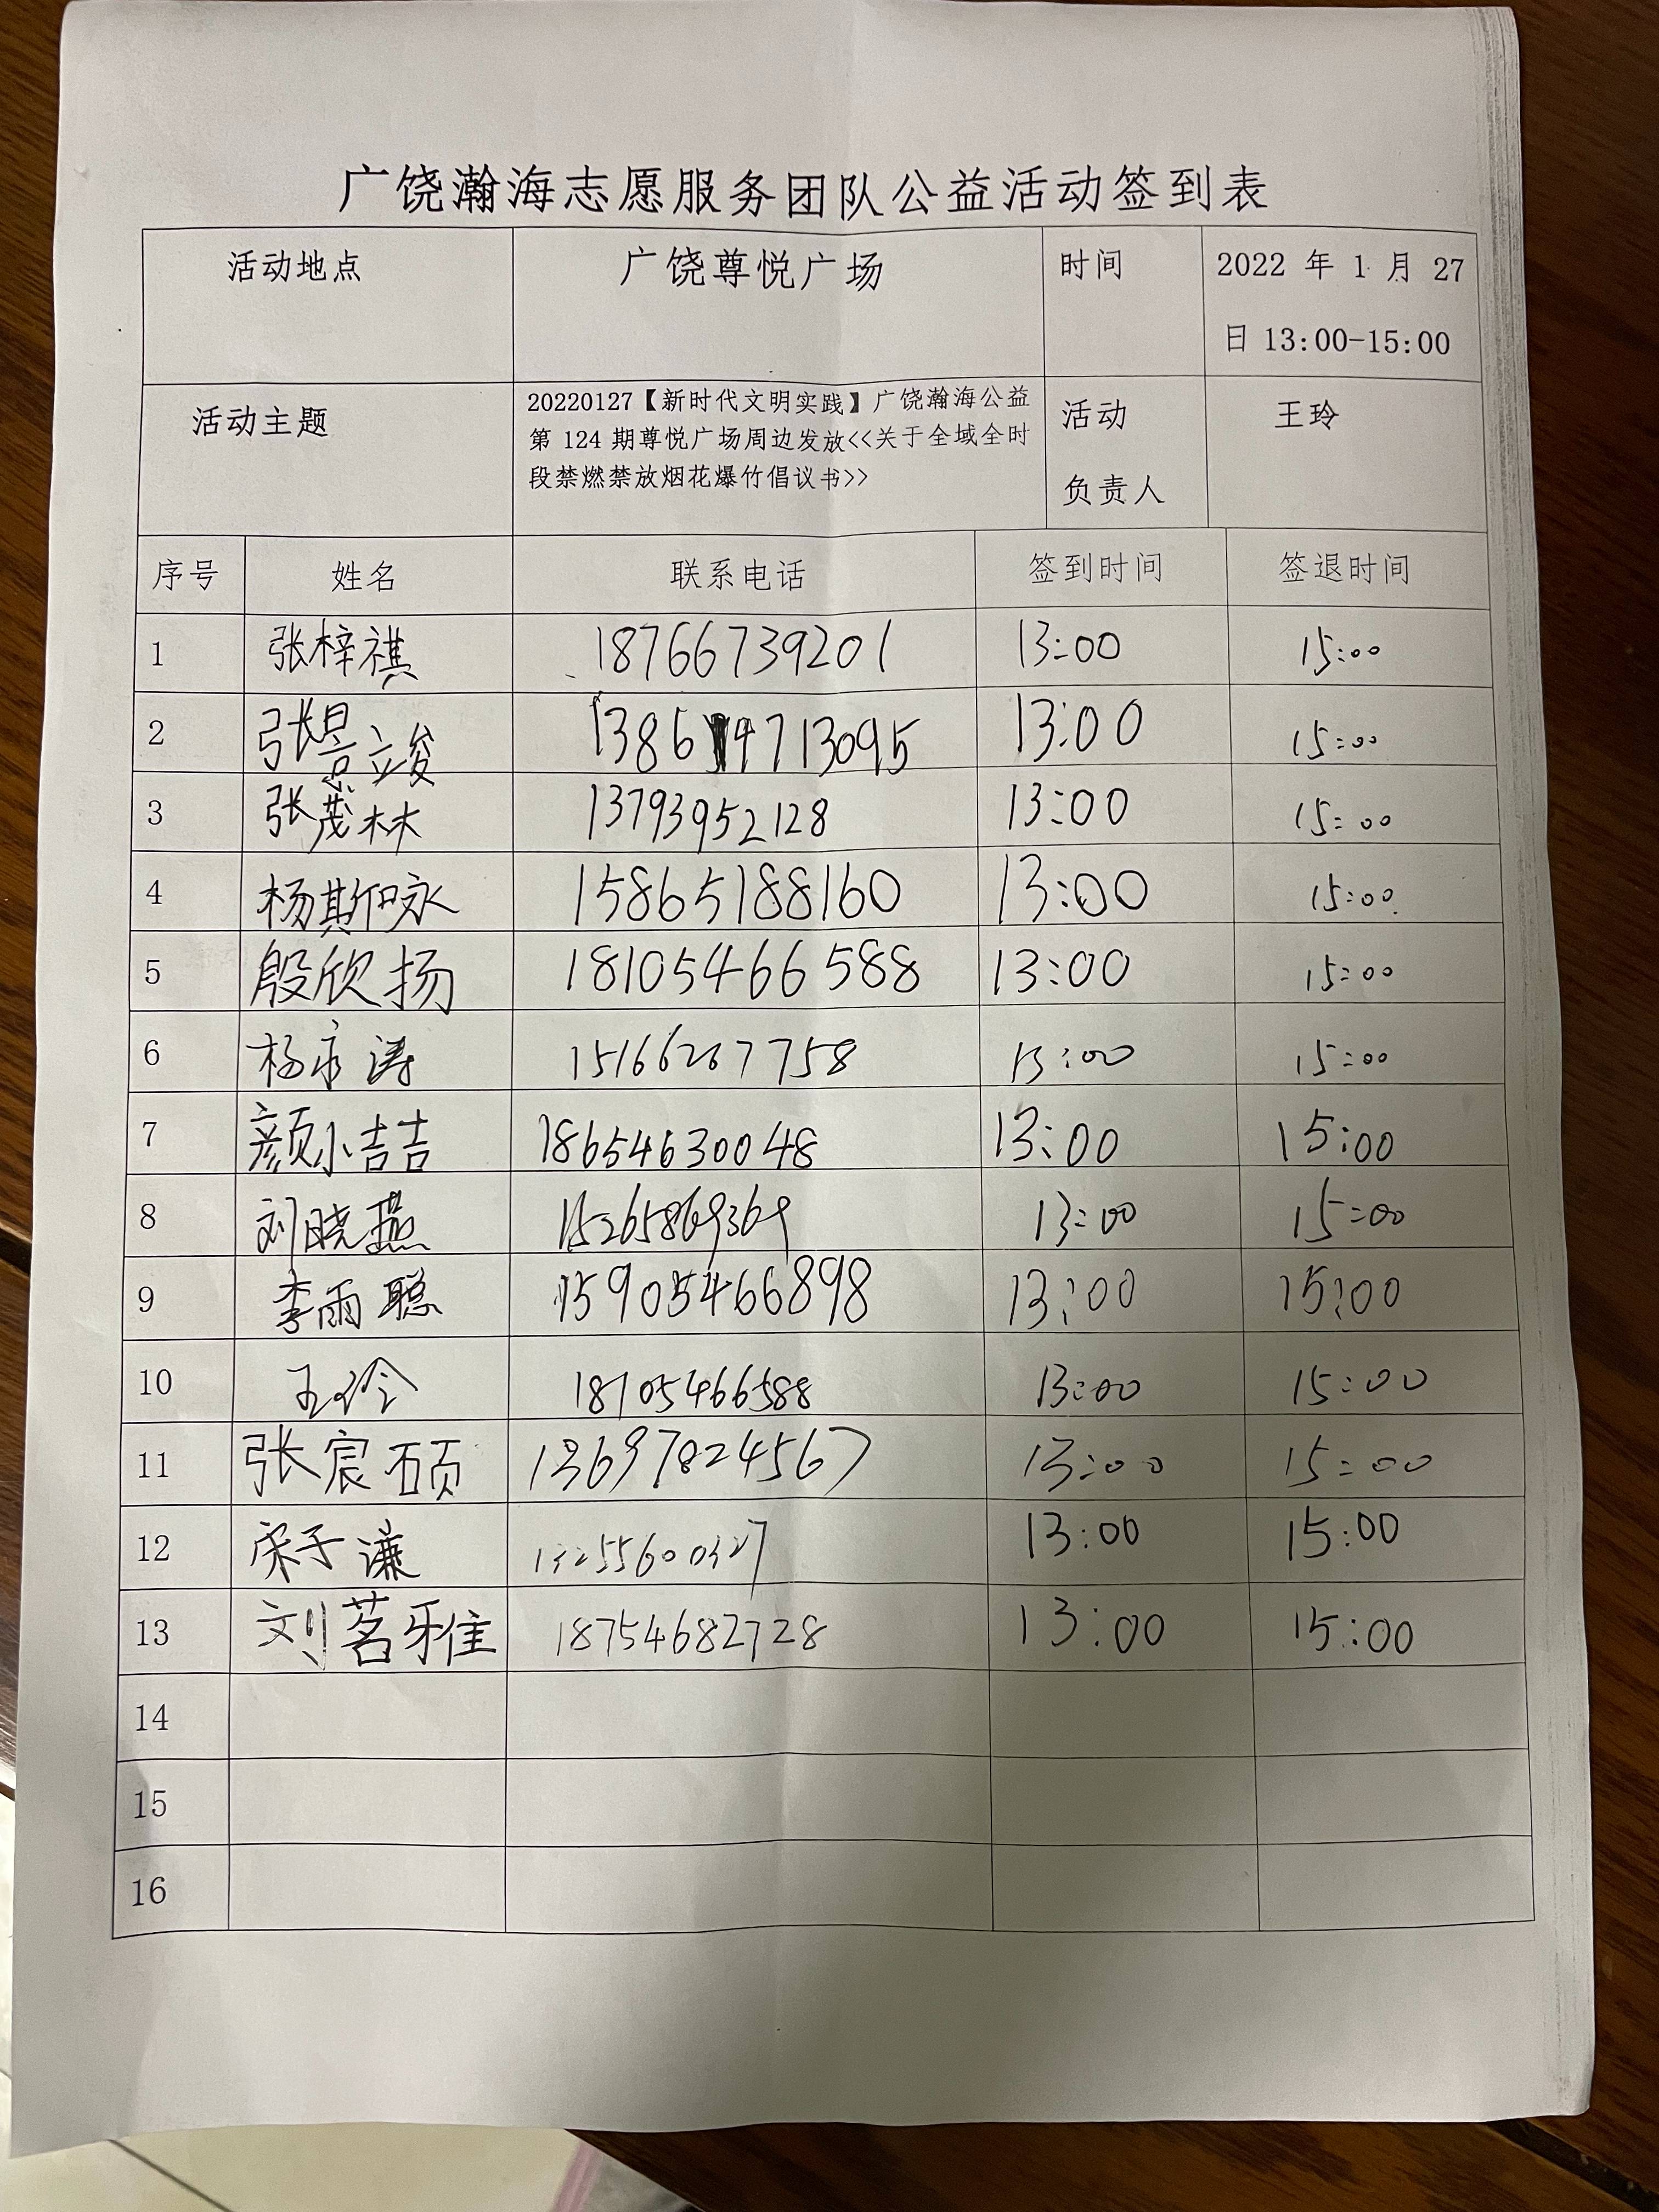 广饶瀚海志愿服务团队公益活动签到表
活动地点 广饶尊悦广场 时间 2022 年 1 月 27
日 13:00-15:00
活动主题 20220127【新时代文明实践】广饶瀚海公益 活动 王玲
第 124 期尊悦广场周边发放<<关于全域全时
段禁燃禁放烟花爆竹倡议书>> 负责人
序号 姓名 联系电话 签到时间 签退时间
1 张梓祺 18766739201 13:00 15:00
2 张景立俊 13864713095 13:00 15:00
3 张茂林 13793952128 13:00 15:00
4 杨斯咏 15865188160 13:00 15:00
5 殷欣扬 18105466588 13:00 15:00
6 杨永涛 15166267758 13:00 15:00
7 颜小喆 18654630048 13:00 15:00
8 刘晓燕 15265869369 13:00 15:00
9 李雨聪 15905466898 13:00 15:00
10 王玲 18105466588 13:00 15:00
11 张宸硕 13697824567 13:00 15:00
12 宋子谦 13255600327 13:00 15:00
13 刘茗雅 18754682728 13:00 15:00
14
15
16